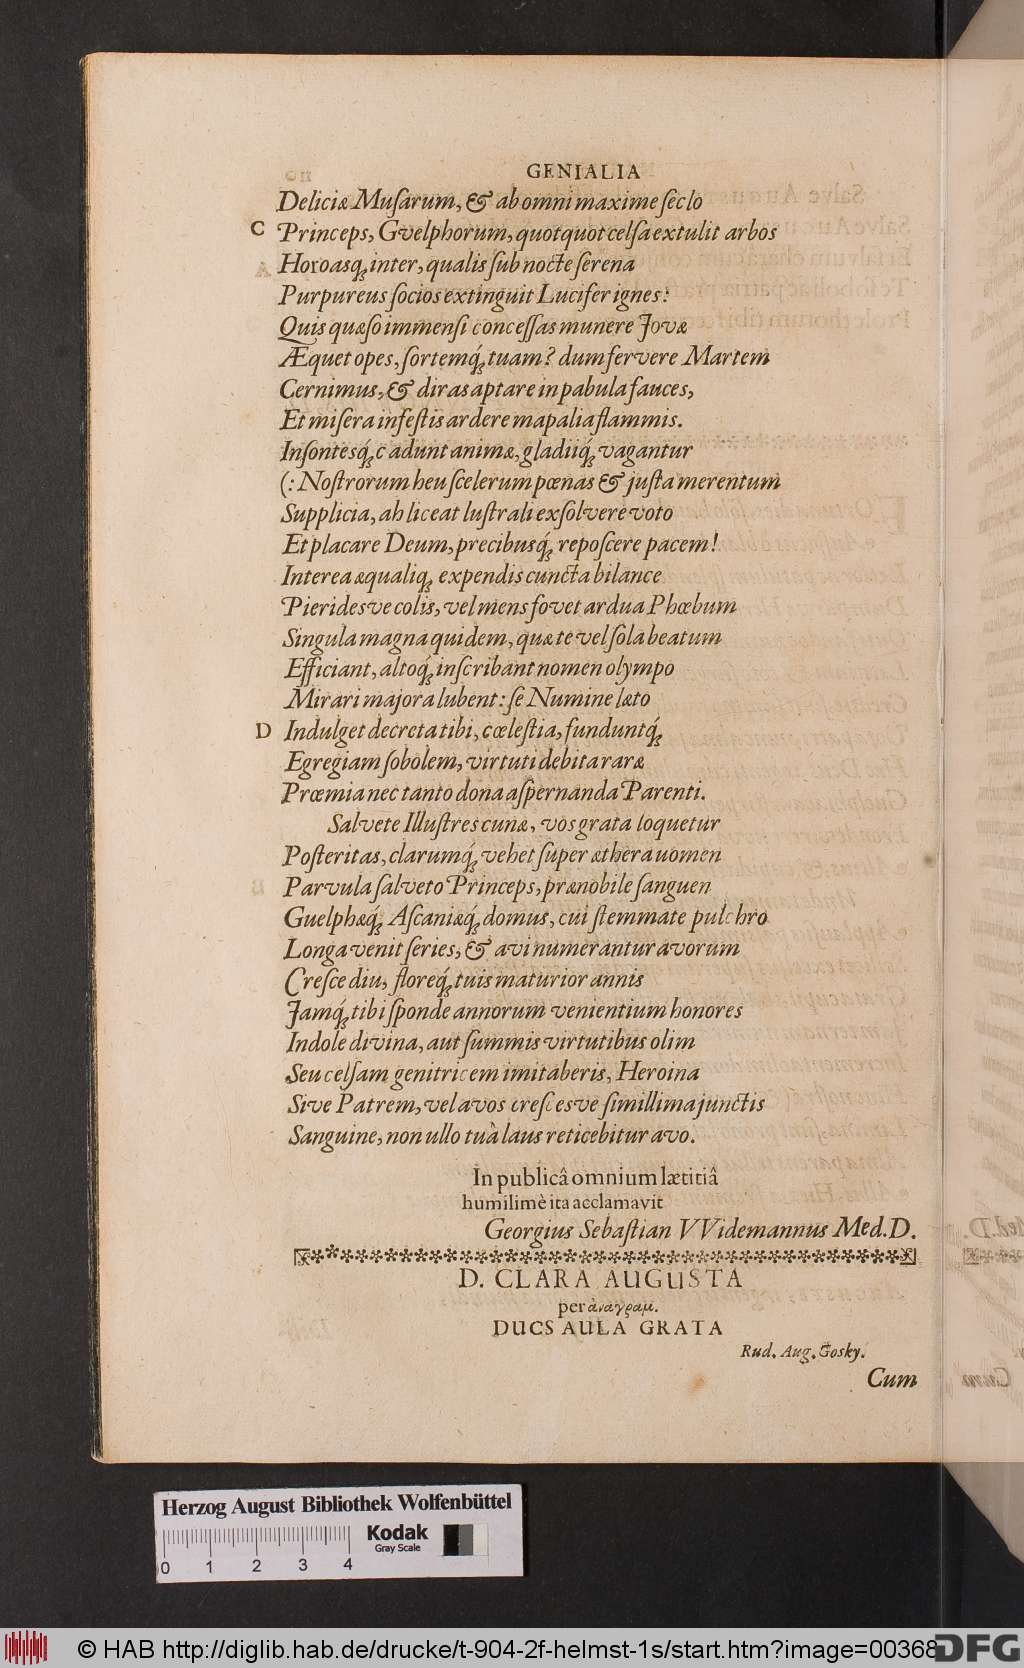 GENIALIA
Deliciæ Muſarum, & ab omni maxime ſeclo
C Princeps, Gvelphorum, quotquot celſa extulit arbos
Horoasq́; inter, qualis ſub nocte ſerena
Purpureus ſocios extinguit Lucifer ignes:
Quis quæſo immenſi conceſſas munere Jovæ
Æquet opes, ſortemq́; tuam? dum fervere Martem
Cernimus, & diras aptare in pabula fauces,
Et miſera infeſtis ardere mapalia flammis.
Inſontesq́; cadunt animæ, gladiiq́; vagantur
(: Noſtrorum heu ſcelerum pœnas & juſta merentum
Supplicia, ah liceat luſtrali exſolvere voto
Et placare Deum, precibusq́; repoſcere pacem!
Interea æqualiq́; expendis cuncta bilance
Pieridesve colis, vel mens fovet ardua Phœbum
Singula magna quidem, quæ te vel ſola beatum
Efficiant, altoq́; inſcribant nomen olympo
Mirari majora lubent: ſe Numine læto
D Indulget decreta tibi, cœleſtia, funduntq́;
Egregiam ſobolem, virtuti debita raræ
Prœmia nec tanto dona aſpernanda Parenti.
Salvete Illuſtres cunæ, vos grata loquetur
Poſteritas, clarumq́; vehet ſuper æthera uomen
Parvula ſalveto Princeps, prænobile ſanguen
Guelphæq́; Aſcaniæq́; domus, cui ſtemmate pulchro
Longa venit ſeries, & avi numerantur avorum
Creſce diu, floreq́; tuis maturior annis
Jamq́; tibi ſponde annorum venientium honores
Indole divina, aut ſummis virtutibus olim
Seu celſam genitricem imitaberis, Heroina
Sive Patrem, vel avos creſcesve ſimillima junctis
Sanguine, non ullo tuà laus reticebitur avo.
In publicâ omnium lætitiâ
humilimè ita acclamavit
Georgius Sebaſtian VVidemannus Med. D.
D. CLARA AUGUSTA
per ἀναγραμ.
DUCS AULA GRATA
Rud. Aug. Gosky.
Cum
Herzog August Bibliothek Wolfenbüttel
Kodak
Gray Scale
0 1 2 3 4
© HAB http://diglib.hab.de/drucke/t-904-2f-helmst-1s/start.htm?image=00368
DFG